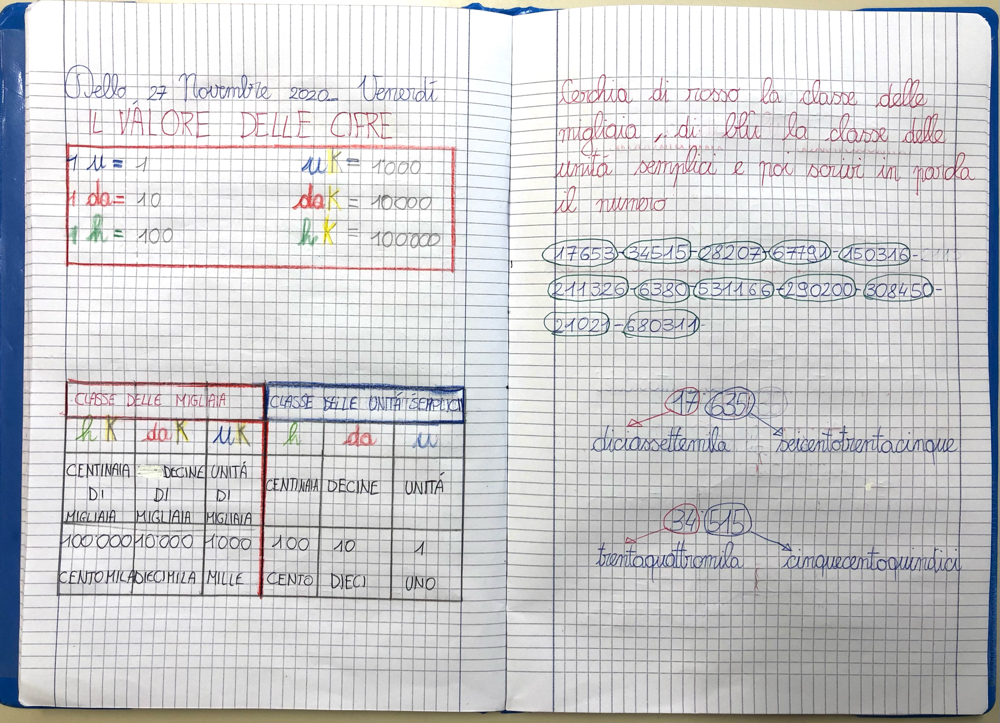 Dello, 27 Novembre 2020 Venerdí
IL VALORE DELLE CIFRE
1 u = 1 uK = 1000
1 da = 10 daK = 10000
1 h = 100 hK = 100000
CLASSE DELLE MIGLIAIA CLASSE DELLE UNITÁ SEMPLICI
hK daK uK h da u
CENTINAIA DI MIGLIAIA DECINE DI MIGLIAIA UNITÁ DI MIGLIAIA CENTINAIA DECINE UNITÁ
100'000 10'000 1'000 100 10 1
CENTOMILA DIECIMILA MILLE CENTO DIECI UNO
Cerchia di rosso la classe delle
migliaia, di blú la classe delle
unitá semplici e poi scrivi in parola
il numero
17653-34515-28207-67791-150316-
211326-6380-531166-290200-308450-
21021-680311-
17 635
diciassettemila seicentotrentacinque
34 515
trentaquattromila cinquecentoquindici